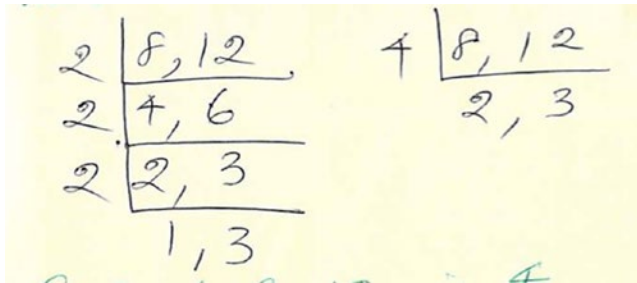 2 | 8, 12
2 | 4, 6
2 | 2, 3
1, 3
4 | 8, 12
2, 3